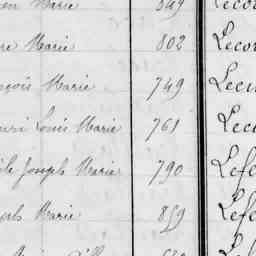 Marie 849 Leco
re Marie 802 Lecor
nçois Marie 749 Lecu
enri Louis Marie 761 Lecu
ile Joseph Marie 790 Lefe
seph Marie 859 Lefe
Lefe